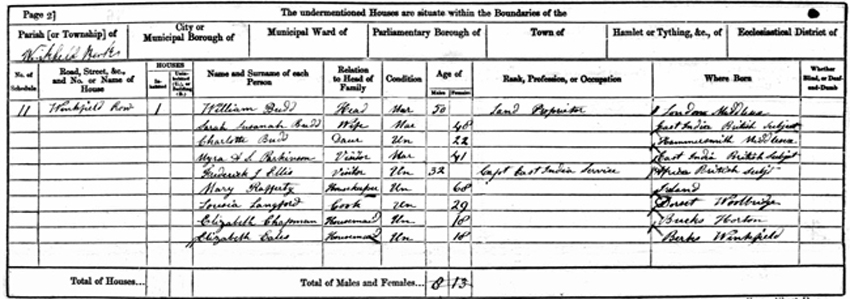 Page 2]
The undermentioned Houses are situate within the Boundaries of the
Parish [or Township] of
City or Municipal Borough of
Municipal Ward of
Parliamentary Borough of
Town of
Hamlet or Tything, &c., of
Ecclesiastical District of
Winkfield Berks
No. of Schedule
Road, Street, &c., and No. or Name of House
HOUSES
Name and Surname of each Person
Relation to Head of Family
Condition
Age of
Males Females
Rank, Profession, or Occupation
Where Born
Whether Blind, or Deaf-and-Dumb
11 Winkfield Row 1 William Budd Head Mar 50 Land Proprietor London Middlesex
Sarah Susanah Budd Wife Mar 48 East India British Subject
Charlotte Budd Daur Un 22 Hammersmith Middlesex
Myra Parkinson Visitor Mar 41 East India British Subjt
Frederick J Ellis Visitor Un 32 Capt East India Service Africa British Subjt
Mary Rafferty Housekeeper Un 68 Ireland
Louisa Langford Cook Un 29 Dorset
Elizabeth Chapman Housemaid Un 18 Bucks Horton
Elizabeth Eales Housemaid Un 18 Berks Winkfield
Total of Houses...
Total of Males and Females... 8 13